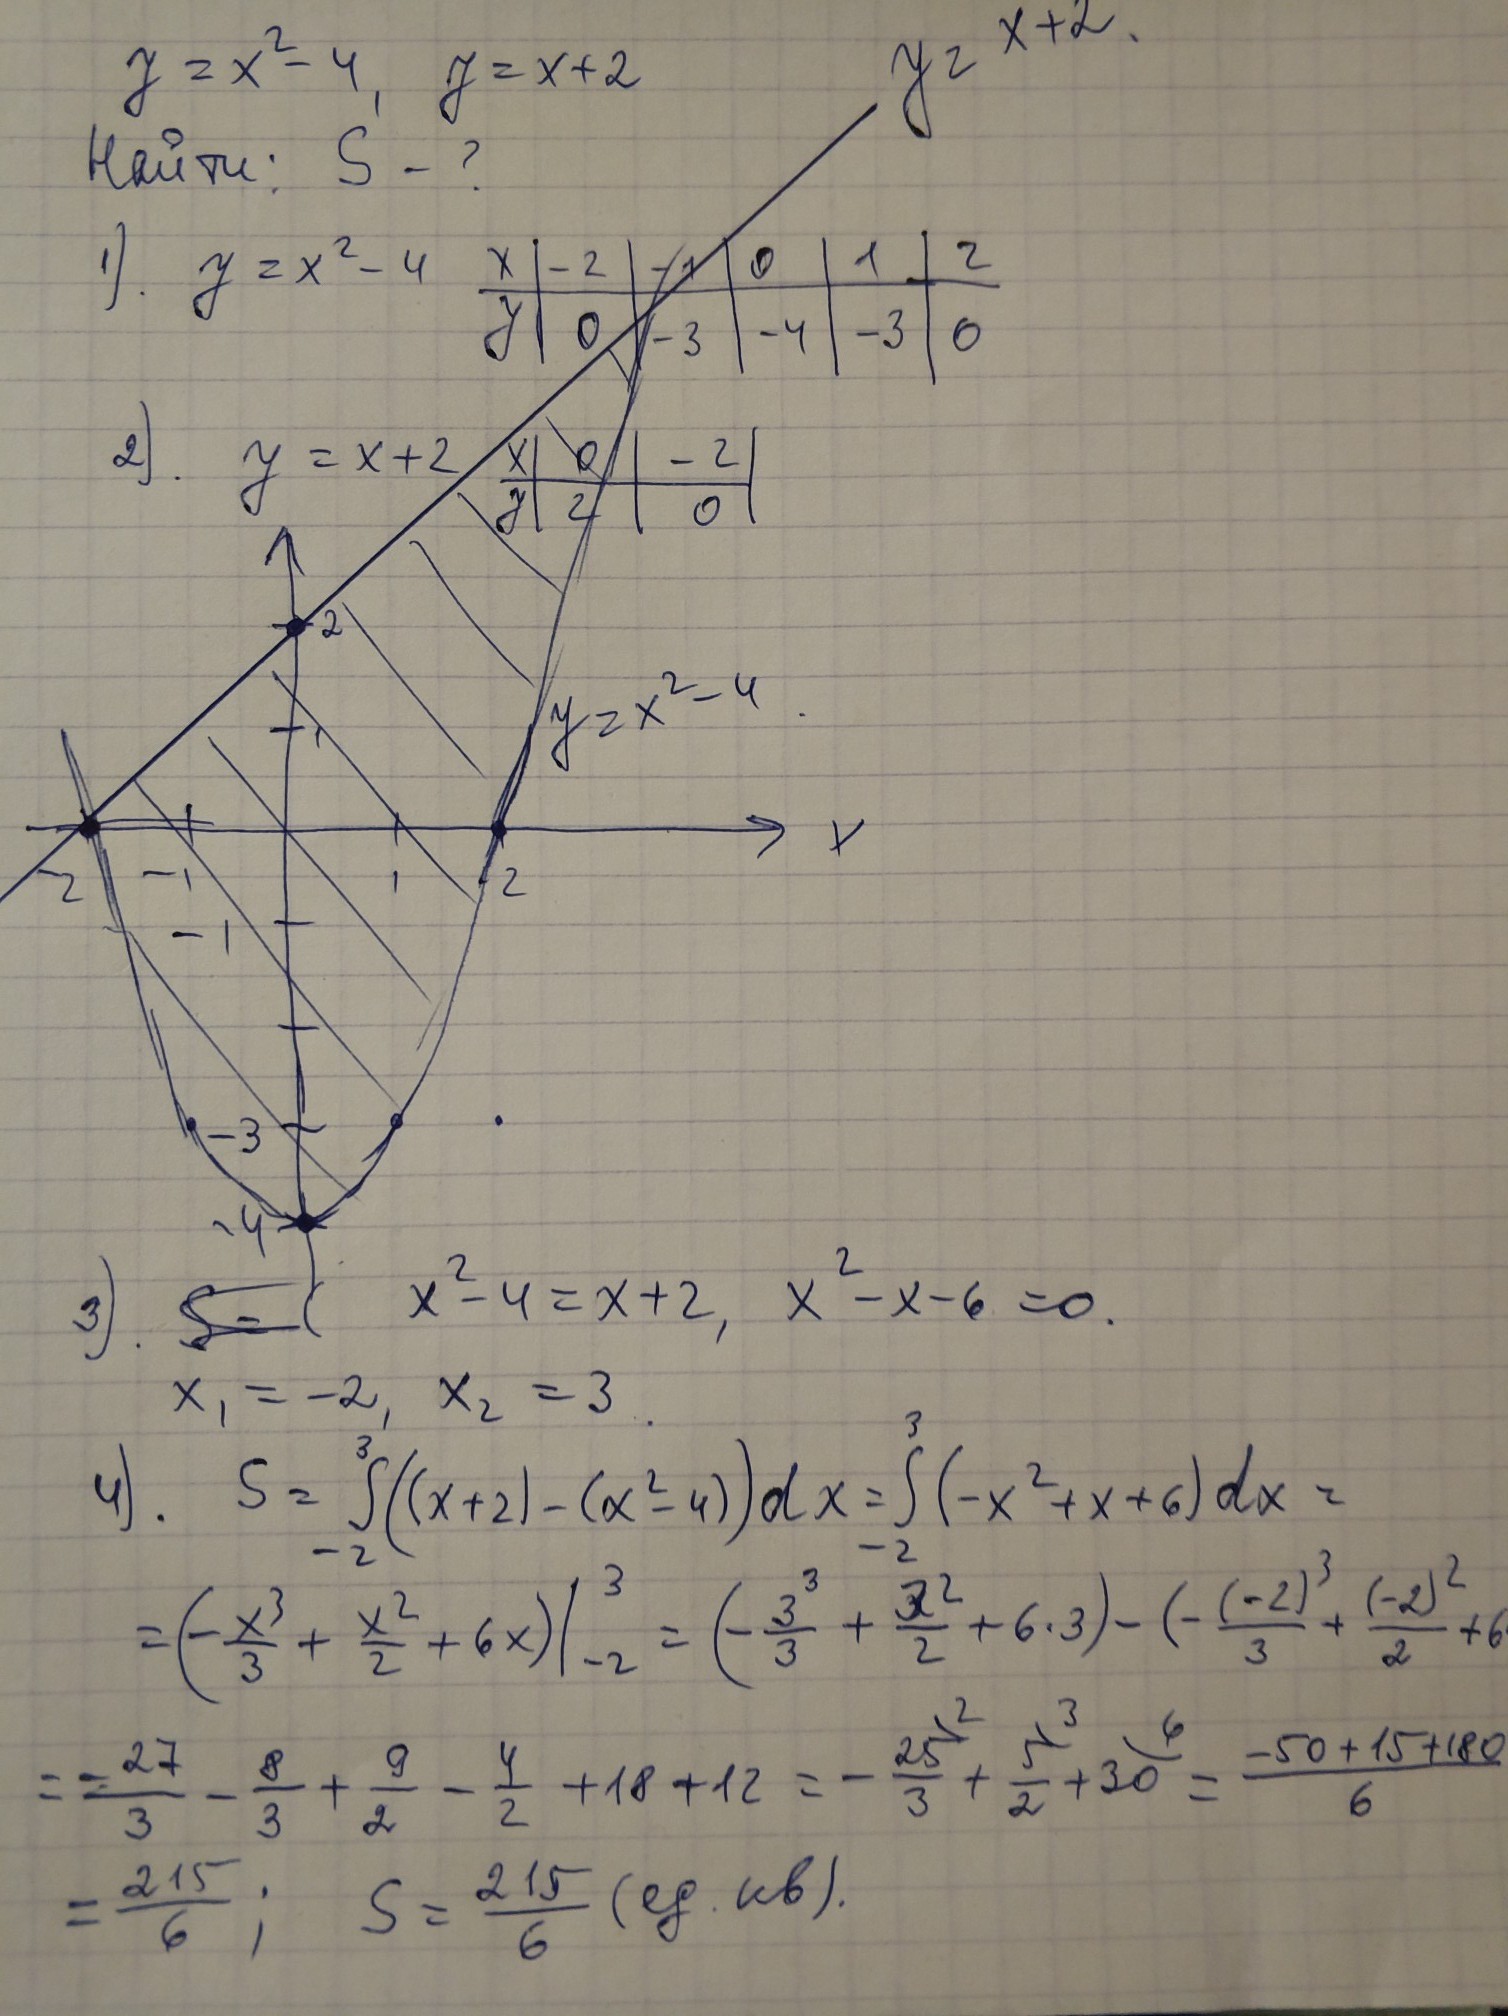 y = x² - 4, y = x+2
y = x+2.
Найти: S - ?
1). y = x² - 4
x | -2 | -1 | 0 | 1 | 2
y | 0 | -3 | -4 | -3 | 0
2). y = x+2
x | 0 | -2 |
y | 2 | 0 |
2
1
y = x² - 4.
x
-2 -1 1 2
-1
-3
-4
3). S = ( x² - 4 = x+2, x² - x - 6 = 0.
x₁ = -2, x₂ = 3.
4). S = ∫₋₂³ ((x+2) - (x² - 4)) dx = ∫₋₂³ (-x² + x + 6) dx =
= (-x³/3 + x²/2 + 6x) |₋₂³ = (-3³/3 + 3²/2 + 6·3) - (-(-2)³/3 + (-2)²/2 + 6·
= -27/3 - 8/3 + 9/2 - 4/2 + 18 + 12 = -25\2/3 + 5\3/2 + 30\6 = (-50 + 15 + 180)/6
= 215/6; S = 215/6 (ед. кв).